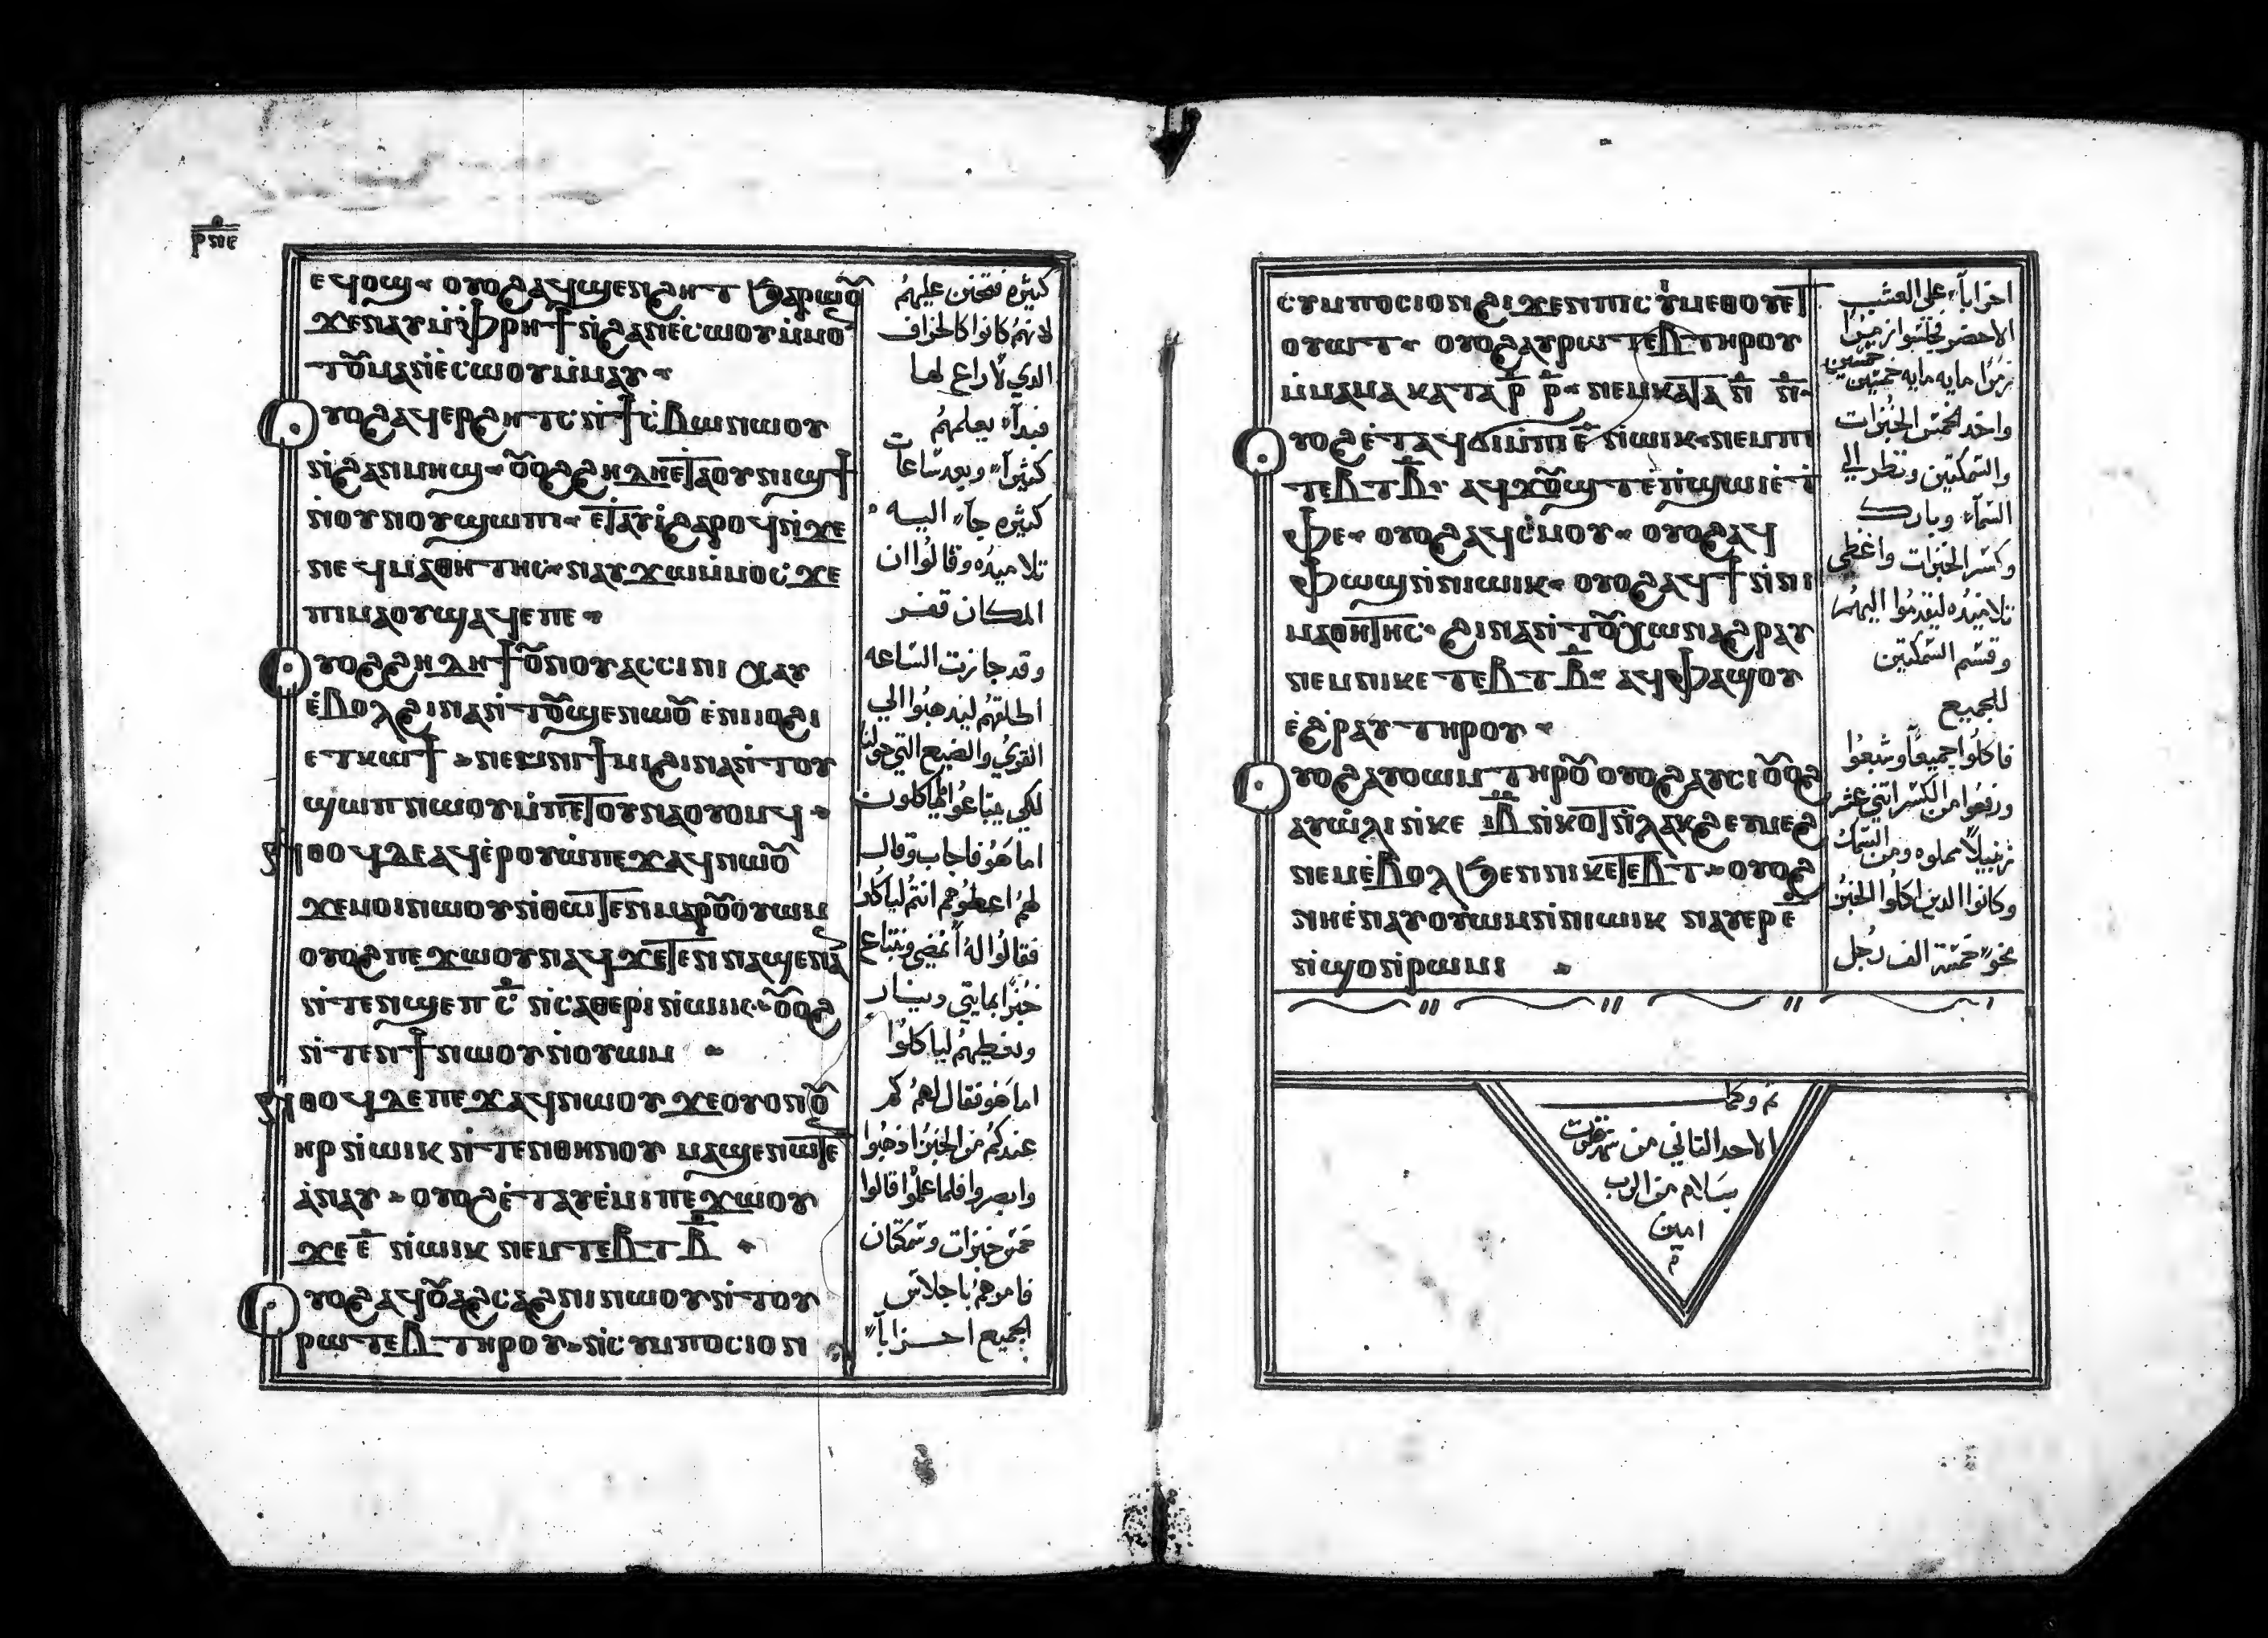 ⲣⲛⲉ
ⲉϥⲟϣ ⲟⲩⲟϩ ⲁϥϣⲉⲛϩⲏⲧ ϧⲁⲣⲱⲟⲩ
ϫⲉ ⲛⲁⲩⲙ̀ⲫⲣⲏϯ ⲛ̀ϩⲁⲛⲉ̀ⲥⲱⲟⲩ ⲙ̀ⲙⲟⲛ
ⲧⲟⲩ ⲙⲁⲛⲉ̀ⲥⲱⲟⲩ ⲙ̀ⲙⲁⲩ
ⲟⲩⲟϩ ⲁϥⲉⲣϩⲏⲧⲥ ⲛ̀ϯⲥ̀ⲃⲱ ⲛⲱⲟⲩ
ⲛ̀ϩⲁⲛⲙⲏϣ ⲟⲩⲟϩ ϩⲏⲇⲏ ⲉⲧⲁⲟⲩⲛⲓϣϯ
ⲛ̀ⲟⲩⲛⲟⲩ ϣⲱⲡⲓ ⲉⲧⲁⲩⲓ̀ ϩⲁⲣⲟϥ ⲛ̀ϫⲉ
ⲛⲉϥⲙⲁⲑⲏⲧⲏⲥ ⲛⲁⲩϫⲱ ⲙ̀ⲙⲟⲥ ϫⲉ
ⲡⲓⲙⲁ ⲟⲩϣⲁϥⲉ ⲡⲉ
ⲟⲩⲟϩ ϩⲏⲇⲏ ϯⲟⲩⲛⲟⲩ ⲁⲥⲥⲓⲛⲓ ⲭⲁⲩ
ⲉ̀ⲃⲟⲗ ϩⲓⲛⲁ ⲛ̀ⲧⲟⲩϣⲉⲛⲱⲟⲩ ⲉ̀ⲛⲓⲓⲟϩⲓ
ⲉⲧⲕⲱϯ ⲛⲉⲙ ⲛⲓϯⲙⲓ ϩⲓⲛⲁ ⲛ̀ⲧⲟⲩ
ϣⲱⲡ ⲛⲱⲟⲩ ⲙ̀ⲡⲉⲧⲟⲩⲛⲁⲟⲩⲟⲙϥ
ⲛ̀ⲑⲟϥ ⲇⲉ ⲁϥⲉ̀ⲣⲟⲩⲱ̀ ⲡⲉϫⲁϥ ⲛⲱⲟⲩ
ϫⲉ ⲙⲟⲓ ⲛⲱⲟⲩ ⲛ̀ⲑⲱⲧⲉⲛ ⲙⲁⲣⲟⲩⲟⲩⲱⲙ
ⲟⲩⲟϩ ⲡⲉϫⲱⲟⲩ ⲛⲁϥ ϫⲉ ⲧⲉⲛⲛⲁϣⲉⲛⲁⲛ
ⲛ̀ⲧⲉⲛϣⲉⲡ ⲥ̅ ⲛ̀ⲥⲁⲑⲉⲣⲓ ⲛ̀ⲱⲓⲕ ⲟⲩⲟϩ
ⲛ̀ⲧⲉⲛϯ ⲛⲱⲟⲩ ⲛ̀ⲟⲩⲱⲙ
ⲛ̀ⲑⲟϥ ⲇⲉ ⲡⲉϫⲁϥ ⲛⲱⲟⲩ ϫⲉ ⲟⲩⲟⲛ ⲟⲩ
ⲏⲣ ⲛ̀ⲱⲓⲕ ⲛ̀ⲧⲉⲛⲑⲏⲛⲟⲩ ⲙⲁϣⲉⲛⲱⲧⲉⲛ
ⲁ̀ⲛⲁⲩ ⲟⲩⲟϩ ⲉ̀ⲧⲁⲩⲉ̀ⲙⲓ ⲡⲉϫⲱⲟⲩ
ϫⲉ ⲉ̅ ⲛ̀ⲱⲓⲕ ⲛⲉⲙ ⲧⲉⲃⲧ ⲃ̅
ⲟⲩⲟϩ ⲁϥⲟⲩⲁϩⲥⲁϩⲛⲓ ⲛⲱⲟⲩ ⲛ̀ⲧⲟⲩ
ⲣⲱⲧⲉⲃ ⲧⲏⲣⲟⲩ ⲛ̀ⲥⲩⲙⲡⲟⲥⲓⲟⲛ
كثيره فتحنن عليهم
لانهم كانوا كالخراف
الذي لا راع لها
فبدأ يعلمهم
كثيراً وبعد ساعات
كثيره جآ اليه
تلاميذه وقالوا ان
المكان قفر
وقد جازت الساعه
اطلقهم ليذهبوا الي
القري والضيع التي حولنا
لكي يبتاعوا لهم ما ياكلون
اما هو فاجاب وقال
لهم اعطوهم انتم لياكلوا
فقالوا له أنمضي ونبتاع
خبزاً بمايتي دينار
ونعطيهم لياكلوا
اما هو فقال لهم كم
عندكم من الخبز اذهبوا
وابصروا فلما علموا قالوا
خمس خبزات وسمكتان
فامرهم باجلاس
الجميع احزاباً
ⲥⲩⲙⲡⲟⲥⲓⲟⲛ ϩⲓϫⲉⲛ ⲡⲓⲥⲓⲙ ⲉⲑⲟⲩⲉⲧ
ⲟⲩⲱⲧ ⲟⲩⲟϩ ⲁⲩⲣⲱⲧⲉⲃ ⲧⲏⲣⲟⲩ
ⲙ̀ⲙⲁ ⲙⲁ ⲕⲁⲧⲁ ⲣ̅ ⲣ̅ ⲛⲉⲙ ⲕⲁⲧⲁ ⲛ̅ ⲛ̅
ⲟⲩⲟϩ ⲉ̀ⲧⲁϥϭⲓ ⲙ̀ⲡⲓ ⲉ̅ ⲛ̀ⲱⲓⲕ ⲛⲉⲙ ⲡⲓ
ⲧⲉⲃⲧ ⲃ̅ ⲁϥϫⲟⲩϣⲧ ⲉ̀ⲡϣⲱⲓ ⲉ̀ⲧ
ⲫⲉ ⲟⲩⲟϩ ⲁϥⲥ̀ⲙⲟⲩ ⲟⲩⲟϩ ⲁϥ
ⲫⲱϣ ⲛ̀ⲛⲓⲱⲓⲕ ⲟⲩⲟϩ ⲁϥϯ ⲛ̀ⲛⲓ
ⲙⲁⲑⲏⲧⲏⲥ ϩⲓⲛⲁ ⲛ̀ⲧⲟⲩⲭⲱ ⲛⲁϩⲣⲁⲩ
ⲛⲉⲙ ⲛⲓⲕⲉ ⲧⲉⲃⲧ ⲃ̅ ⲁϥⲫⲁϣⲟⲩ
ⲉ̀ϩ̀ⲣⲁⲩ ⲧⲏⲣⲟⲩ
ⲟⲩⲟϩ ⲁⲩⲟⲩⲱⲙ ⲧⲏⲣⲟⲩ ⲟⲩⲟϩ ⲁⲩⲥⲓ ⲟⲩⲟϩ
ⲁⲩⲱ̀ⲗⲓ ⲛ̀ⲕⲉ ⲓ̅ⲃ̅ ⲛ̀ⲕⲟⲧ ⲛ̀ⲗⲁⲕϩ ⲉⲩⲙⲉϩ
ⲛⲉⲙ ⲉ̀ⲃⲟⲗ ϧⲉⲛ ⲡⲓⲕⲉⲧⲉⲃⲧ ⲟⲩⲟϩ
ⲛⲏ ⲉ̀ⲛⲁⲩⲟⲩⲱⲙ ⲛ̀ⲛⲓⲱⲓⲕ ⲛⲁⲩⲉⲣ ⲉ̅
ⲛ̀ϣⲟ ⲛ̀ⲣⲱⲙⲓ
احزاباً علي العشب
الاخضر فجلسوا زمرًا
زمرًا مايه مايه خمسين خمسين
واخذ الخمس الخبزات
والسمكتين ونظر الي
السمآ وبارك
وكسر الخبزات واعطي
تلاميذه ليقدموا اليهم
وقسم السمكتين
للجميع
فاكلوا جميعاً وشبعوا
ورفعوا من الكسر اثني عشر
زنبيلاً مملوه ومن السمك
وكانوا الذين اكلوا الخبز
نحو خمسة الف رجل
تم وكمل
الاحد التاني من شهر توت
بسلام من الرب
امين